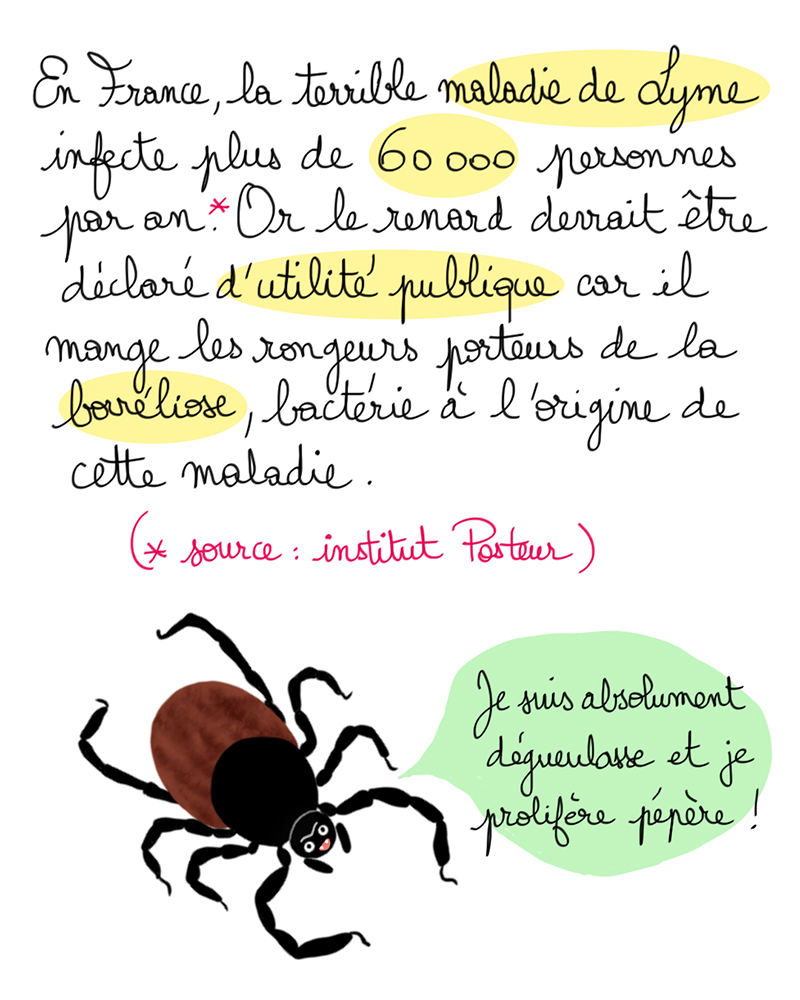 En France, la terrible maladie de Lyme
infecte plus de 60 000 personnes
par an.* Or le renard devrait être
déclaré d'utilité publique car il
mange les rongeurs porteurs de la
borréliose, bactérie à l'origine de
cette maladie.
(* source : institut Pasteur)
Je suis absolument
dégueulasse et je
prolifère pépère !